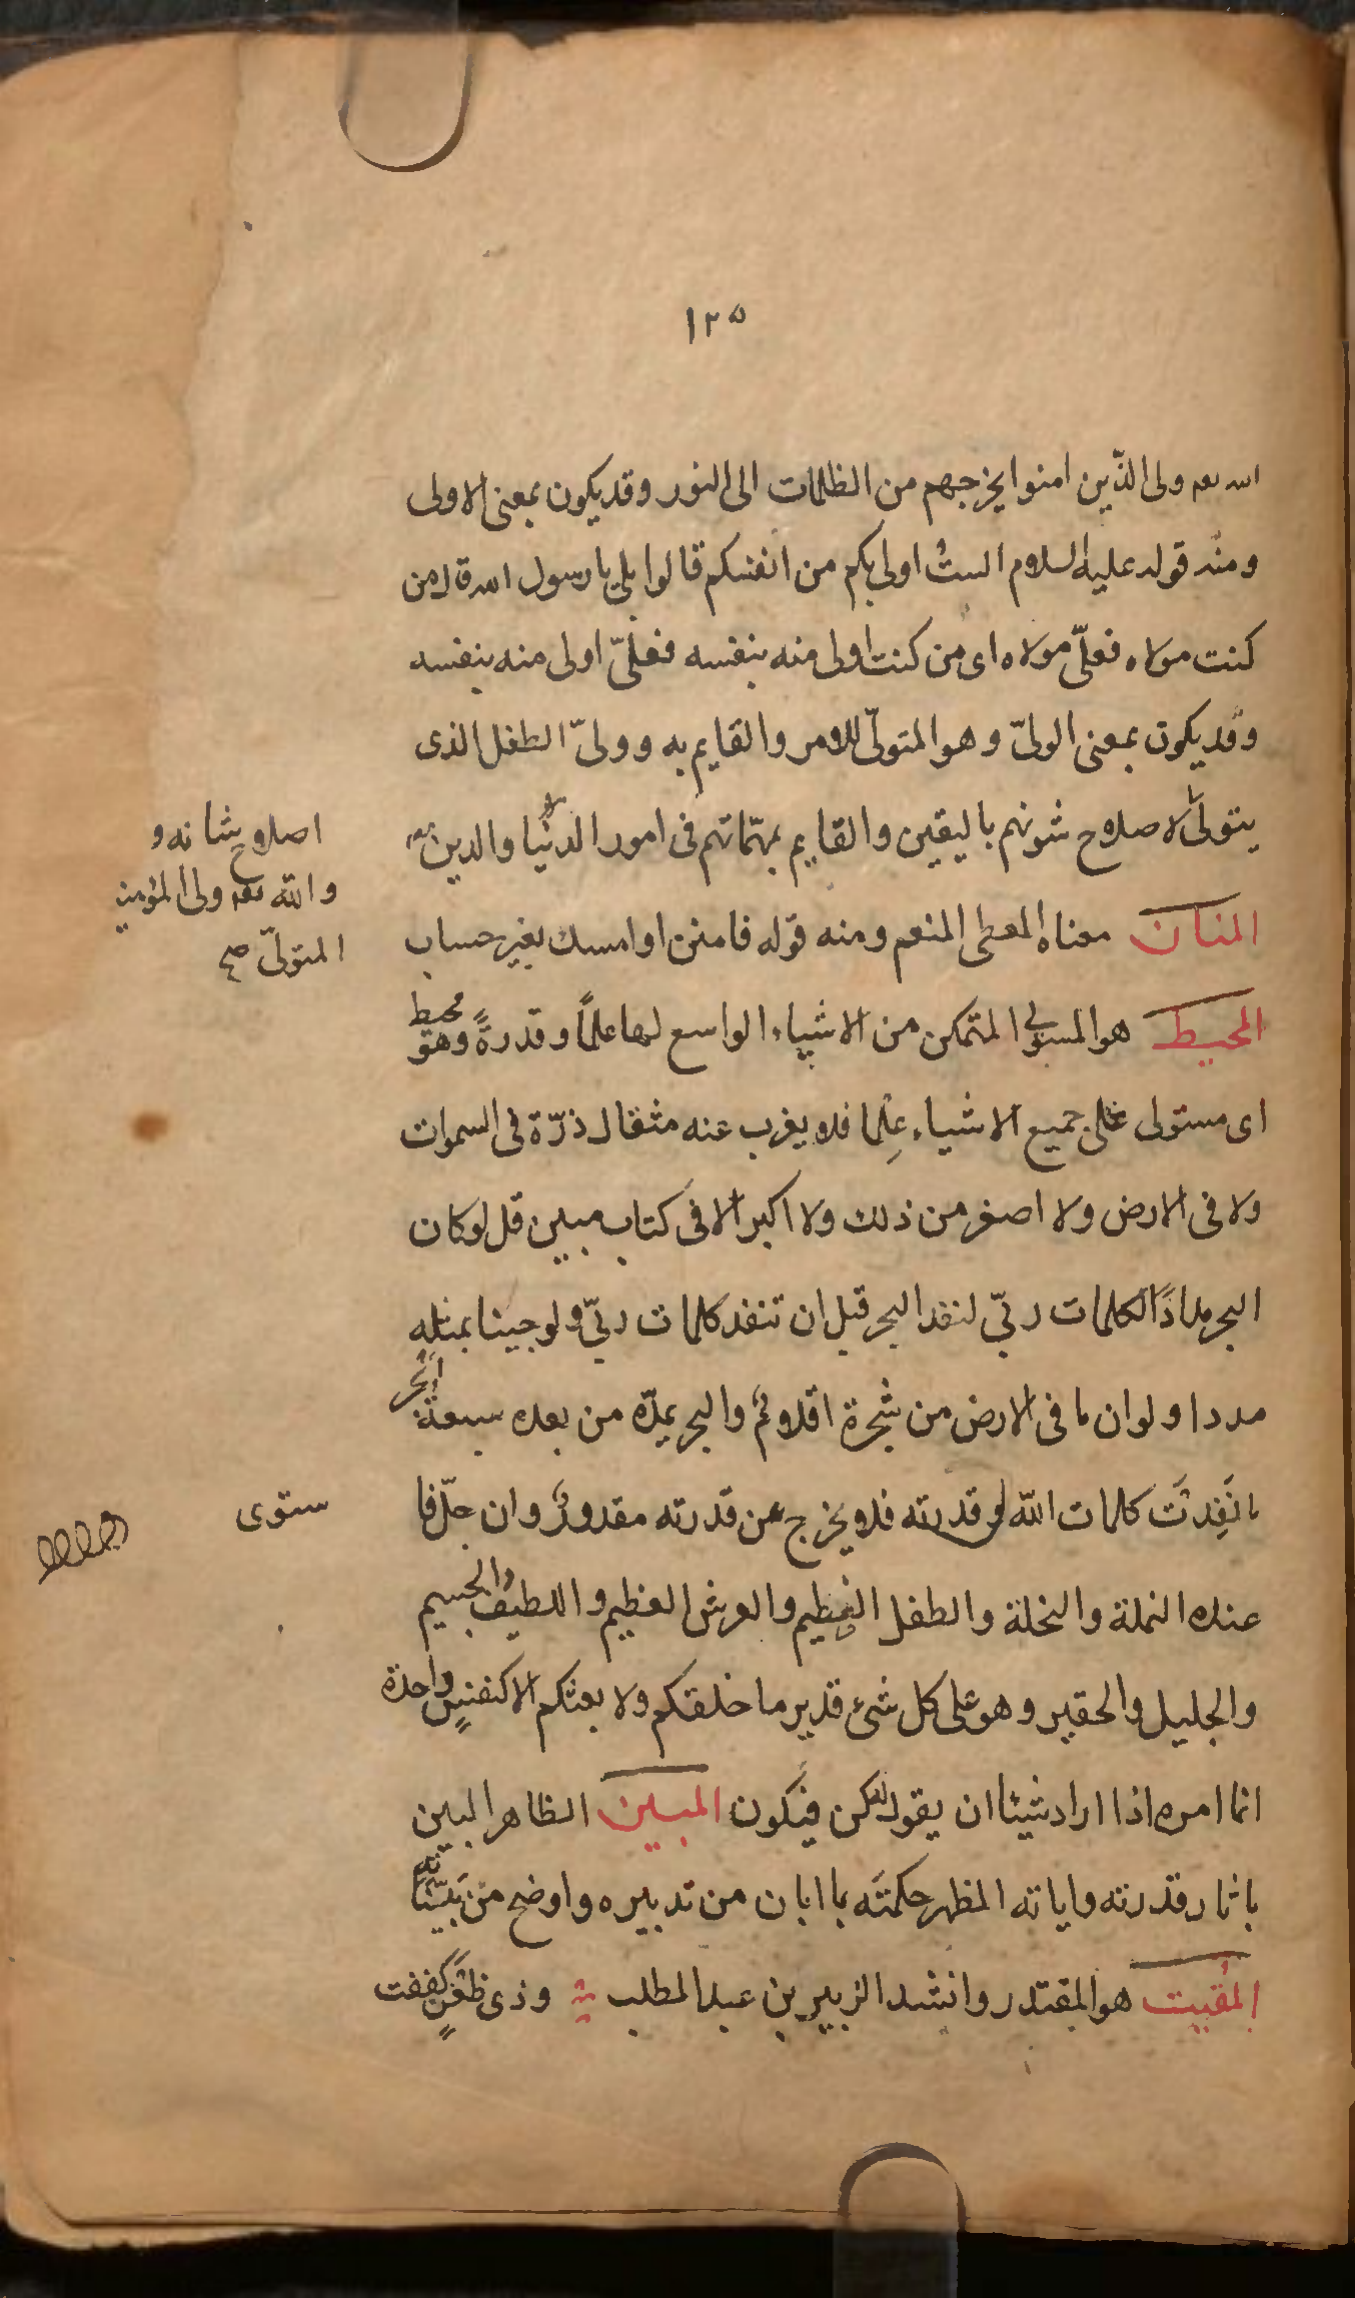 ١٢٥
الله تعم ولى الذّين امنوا يخرجهم من الظلمات الى النور وقد يكون بمعنى الاولى
ومنه قوله عليه السلام الستُ اولى بكم من انفسكم قالوا بلى يا رسول الله قال من
كنت مولاه فعلىّ مولاه اى من كنت اولى منه بنفسه فعلىّ اولى منه بنفسه
وقد يكون بمعنى الولىّ وهو المتولىّ للامر والقايم به وولىّ الطفل الذى
يتولىّ لاصلاح شونهم باليقين والقايم بمهمّاتهم فى امور الدنيا والدين
اصلاح شانه و
والله تعم ولى المؤمنين
المتولىّ صح
المنان معناه المعطى المنعم ومنه قوله فامنن او امسك بغير حساب
المحيط هو المستولى المتمكن من الاشياء الواسع لها علماً وقدرةً وهو محيط
اى مستولى على جميع الاشياء عِلما فلا يغرب عنه مثقال ذرّة فى السموات
ولا فى الارض ولا اصغر من ذلك ولا اكبر الا فى كتاب مبين قل لو كان
البحر مداداً لكلمات ربّى لنفد البحر قبل ان تنفد كلمات ربّى ولو جينا بمثلِهِ
مددا ولو ان ما فى الارض من شجرة اقلامٌ والبحر يمدّه من بعده سبعةُ ابحر
ما نَفِدتَ كلمات الله فى قدرته فلا يخرج عن قدرته مقدورٌ وان جلّ فا
ستوى
عنده النملة والنخلة والطفل الفطيم والعرش العظيم واللطيف والجسيم
والجليل والحقير وهو على كل شئ قدير ما خلقكم ولا بعثكم الا كنفسٍ واحدة
انما امره اذا اراد شيئا ان يقول له كن فيَكون المبين الظاهر البين
باثار قدرته واياته المظهر حكمتَه بما ابان من تدبيره واوضح من بَيّناته
المُقيت هو المقتدر وانشد الزبير بن عبد المطلب وذى ظغنٍ كففت